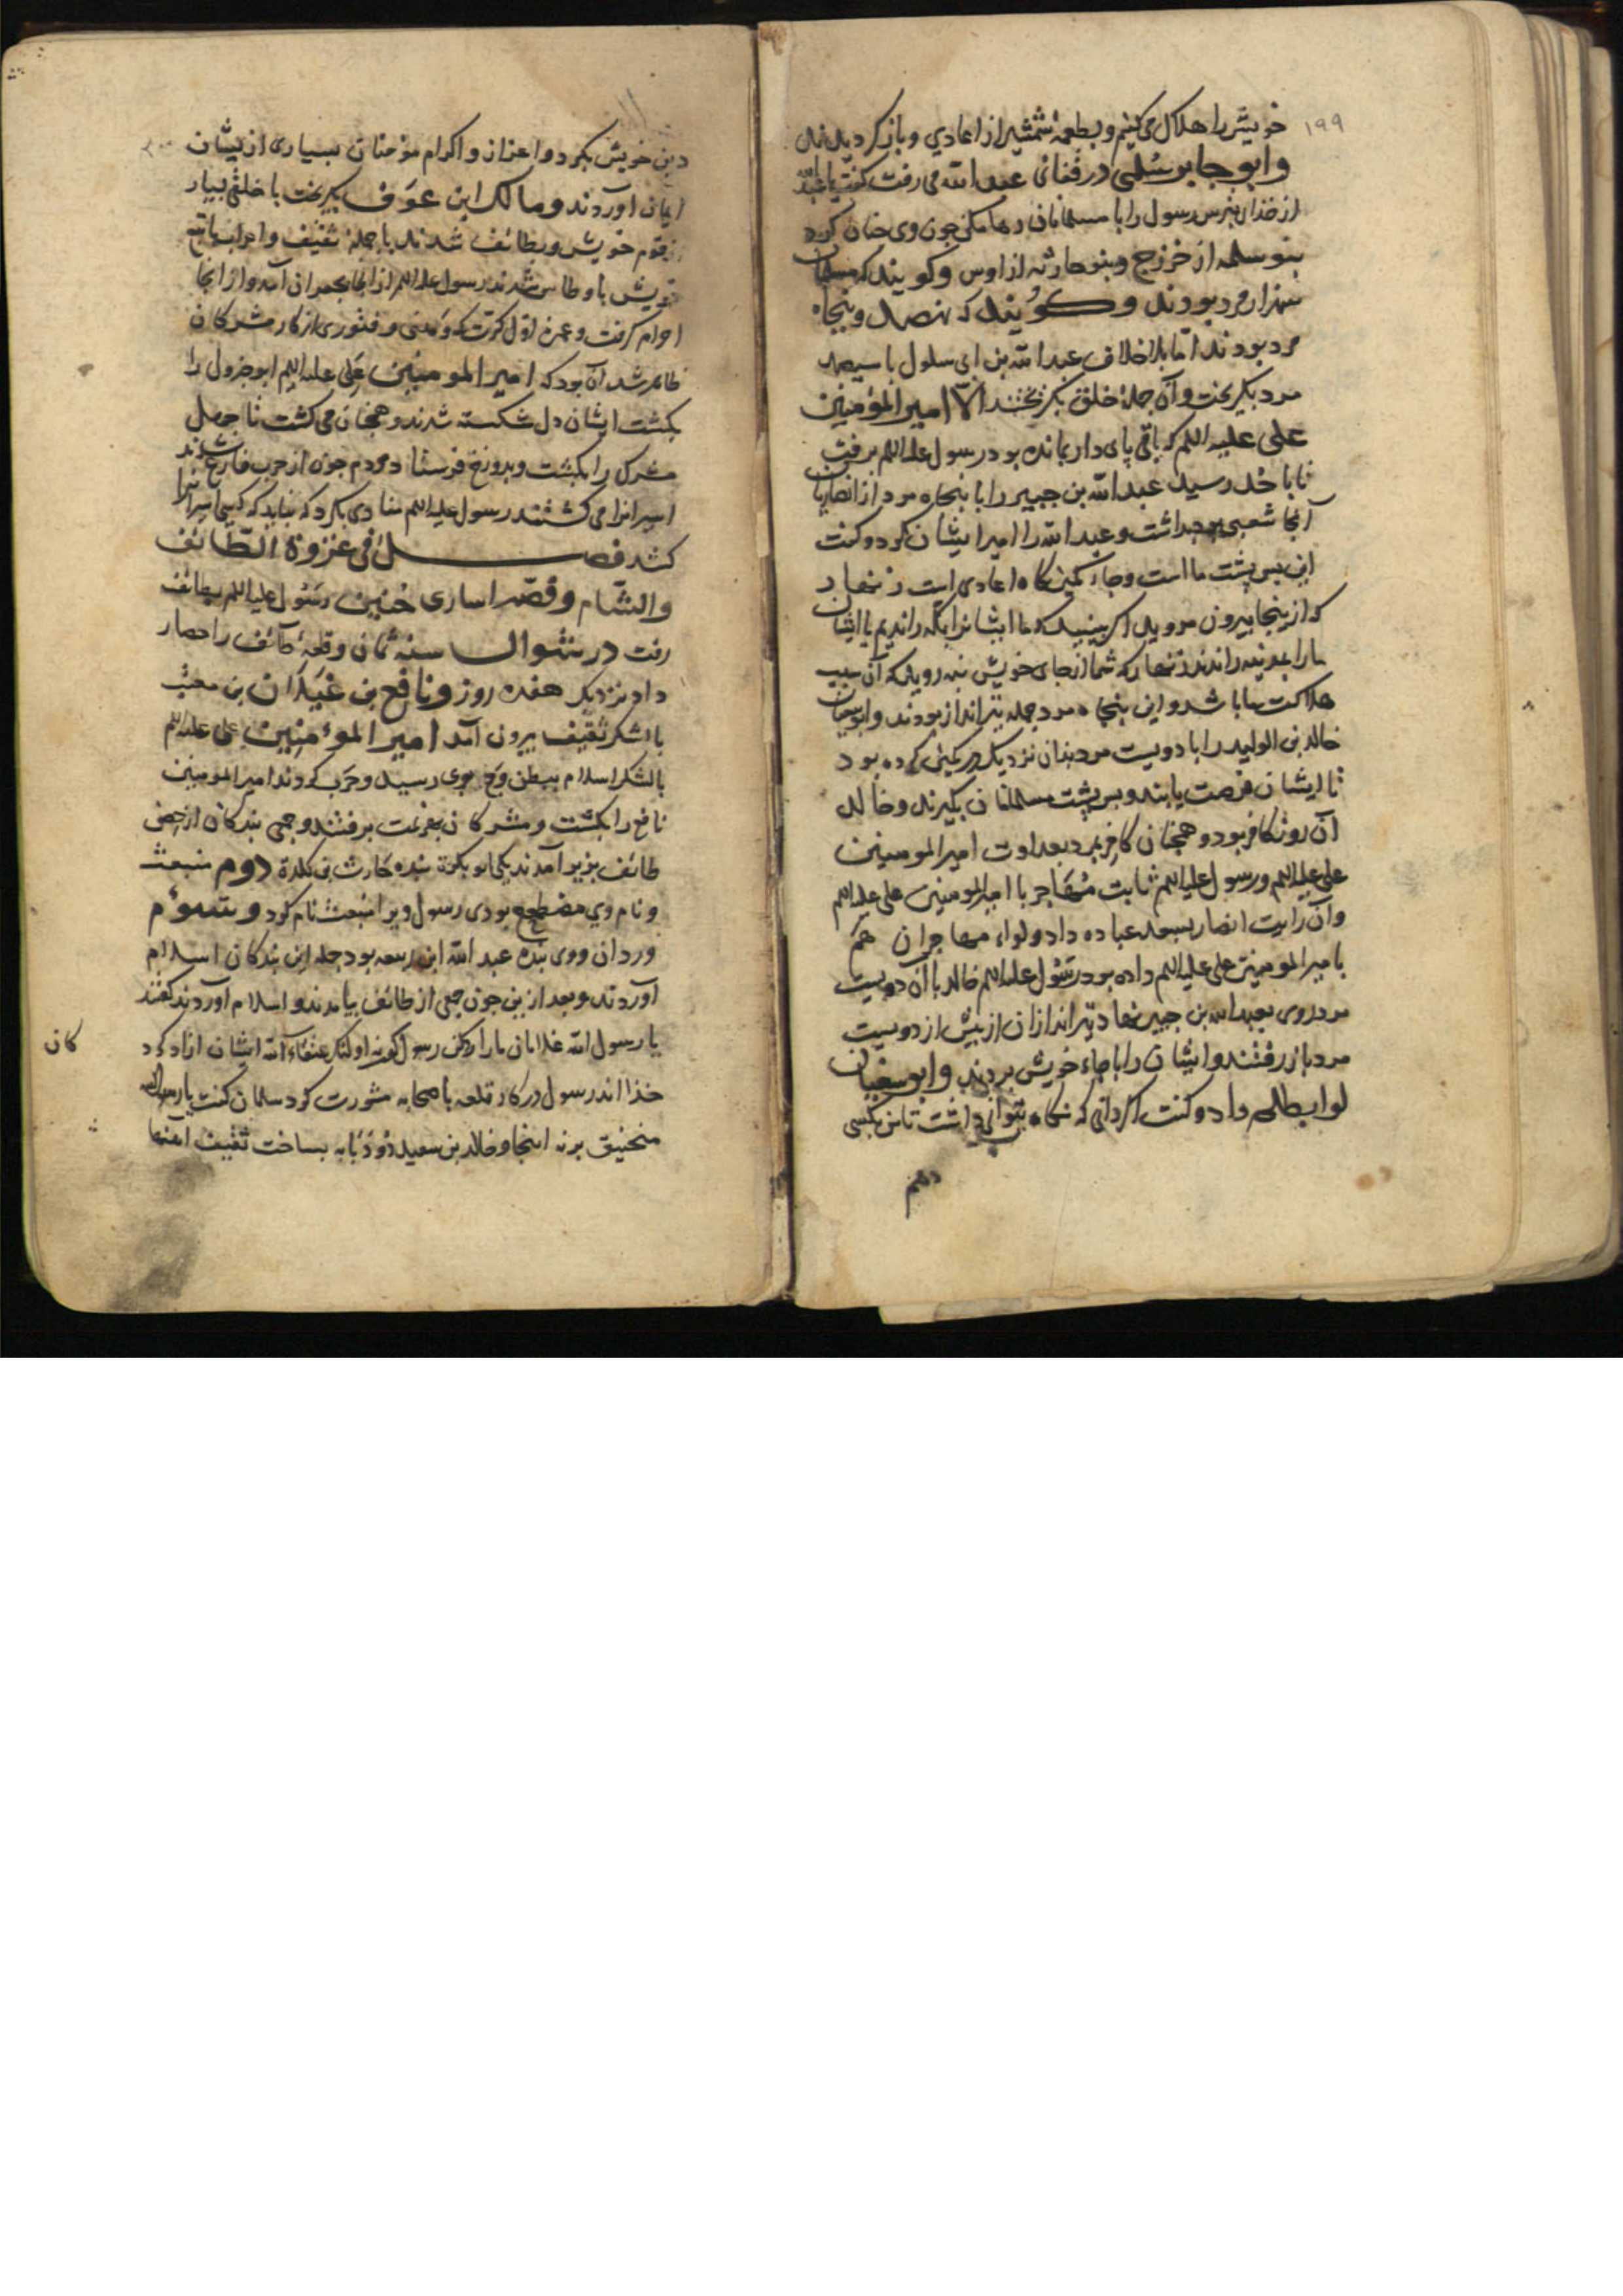 ۱۹۹
خویش را هلاک می کنیم و بطعمهٔ شمشیر از اعادی و باز کردیدند
و ابو جابر سُلمی در قفای عبد الله می رفت کفت یا عبد الله
از خذا بترس رسول را با مسلمانان رها مکن چون وی چنان کرد
بنو سلمه از خزرج و بنو حارثه از اوس و کویند که مسلمانان
هزار مرد بودند و کویند که نهصد و پنجاه
مرد بودند اما بلا خلاف عبد الله بن ابی سلول با سیصد
مرد بکریخت و آن جملهٔ خلق بکریختند الا امیر المؤمنین
علی علیه السلم که باقی پای دار بمانده بود رسول علیه السلم برفت
تا باحُد رسید عبد الله بن جبیر را با پنجاه مرد از انصاریان
آنجا شعبی بود بداشت و عبد الله را امیر ایشان کرد و کفت
این پس پشت ما است و جای کمین کاه اعادی است زنهار
که ازینجا بیرون مروید اکر بینید که ما ایشانرا بمکه راندیم یا ایشان
ما را بمدینه راندند زنهار که شما از جای خویش بنه روید که آن سبب
هلاکت ما باشد و این پنجاه مرد جمله تیرانداز بودند و ابو سفیان
خالد بن الولید را با دویست مرد بدان نزدیک در کمین کرده بود
تا ایشان فرصت یابند و پس پشت مسلمانان بکیرند و خالد
آن روز کافر بود و همچنان کافر بمرد بعداوت امیر المومنین
علی علیه السلم و رسول علیه السلم ثابت مهاجر با امیر المومنین علی علیه السلم
و آن رایت انصار بسعد عباده داد و لواء مهاجران هم
بامیر المومنین علی علیه السلم داده بود رسول علیه السلم خالد با آن دویست
مرد روی بعبد الله بن جبیر نهاد تیراندازان از بیش از دویست
مرد باز رفتند و ایشان را با جاء خویش بردند و ابو سفیان
لوا بطلحه داد و کفت اکر دانی که نکاه بتوانی داشت تا من بکسی
دهم
۲۰۰
دین خویش بکرد و اعزاز و اکرام مؤمنان بسیاری از یشان
ایمان آوردند و مالک ابن عَوف بکریخت با خلقی بسیار
از قوم خویش و بطائف شدند با جملهٔ ثقیف و اعراب باتبع
خویش باوطاس شدند رسول علیه السلم از انجا بجعرانه آمد و از انجا
احرام کرفت و عمره اول کرت که وَهنی و فتوری از کار مشرکان
ظاهر شد آن بود که امیر المومنین علی علیه السلم ابو جرول را
بکشت ایشان دل شکسته شدند و همچنان می کشت تا چهل
مشرک را بکشت و بدوزخ فرستاد مردم چون از حرب فارغ شدند
اسیرانرا می کشتند رسول علیه السلم منادی بکرد که نباید که کسی اسیرانرا
کشد فصل فی غزوة الطائف
والشام و قصهٔ اساری حنین رسول علیه السلم بطائف
رفت در شوال سنهٔ ثمان و قلعهٔ طائف را حصار
داد نزدیک هفده روز و نافع بن غَیلان بن معتب
با لشکر ثقیف بیرون آمد امیر المؤمنین علی علیه السلم
با لشکر اسلام ببطن وَج بوی رسید و حَرب کردند امیر المومنین
نافع را بکشت و مشرکان بهزیمت برفتند و جمعی بندکان از حصن
طائف بزیر آمدند یکی ابو بکرة بنده حارث بن کلدة دوم منبعث
و نام وی مضطجع بودی رسول ویرا منبعث نام کرد و سوم
وردان و وی بنده عبد الله ابن ربیعه بود جمله این بندکان اسلام
آوردند و بعد ازین چون جمعی از طائف بیامدند و اسلام آوردند کفتند
یا رسول الله غلامان ما را رد کن رسول کفت نه اولئک عتقاء الله ایشان آزاد کرد
کان
خذا اند رسول در کار قلعه با صحابه مشورت کرد سلمان کفت یا رسول الله
منجنیق برنه اینجا و خالد بن سعید دو دبابه بساخت ثقیف آهنها